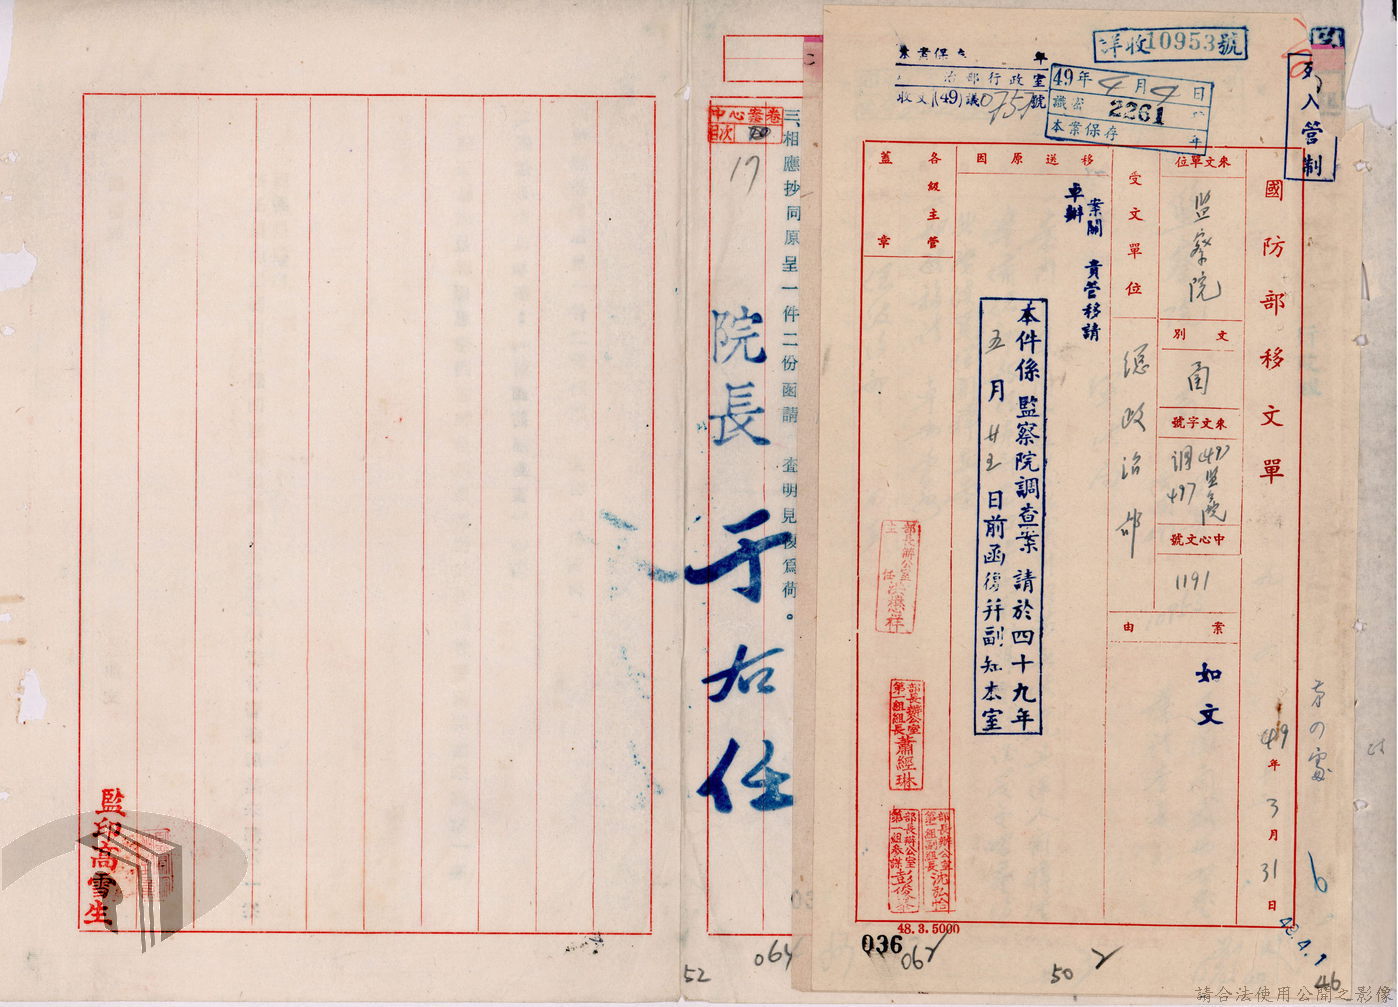 列入管制
詳收10953號
本案保存 年
治部行政室
收文(49)議075號
49年4月4日
2261
本案保存 年
國防部移文單
49年3月31日
來文單位
監察院
文別
函
來文字號
49監院調497
中心文號
1191
受文單位
總政治部
案由
如文
移送原因
案關 貴管移請
卓辦
本件係監察院調查案請於四十九年
五月廿五日前函復并副知本室
各級主管
蓋章
部長辦公室
主任洪懋祥
部長辦公室
第一組組長蕭經琳
部長辦公室
第一組副組長沈弘
部長辦公室
第一組參謀彭
48.3.5000
036
062
50
2
46
6
49.4.1
三、相應抄同原呈一件二份函請 查明見復為荷。
中心案卷
目次
17
院長于右任
064
52
監印高雪生
請合法使用公開之影像